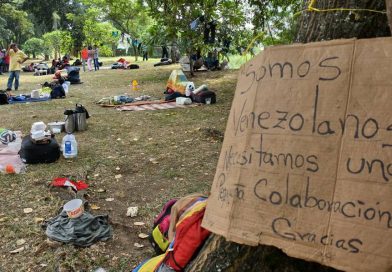 Somos
Venezolanos
Necesitamos una
Pequeña Colaboración
Gracias